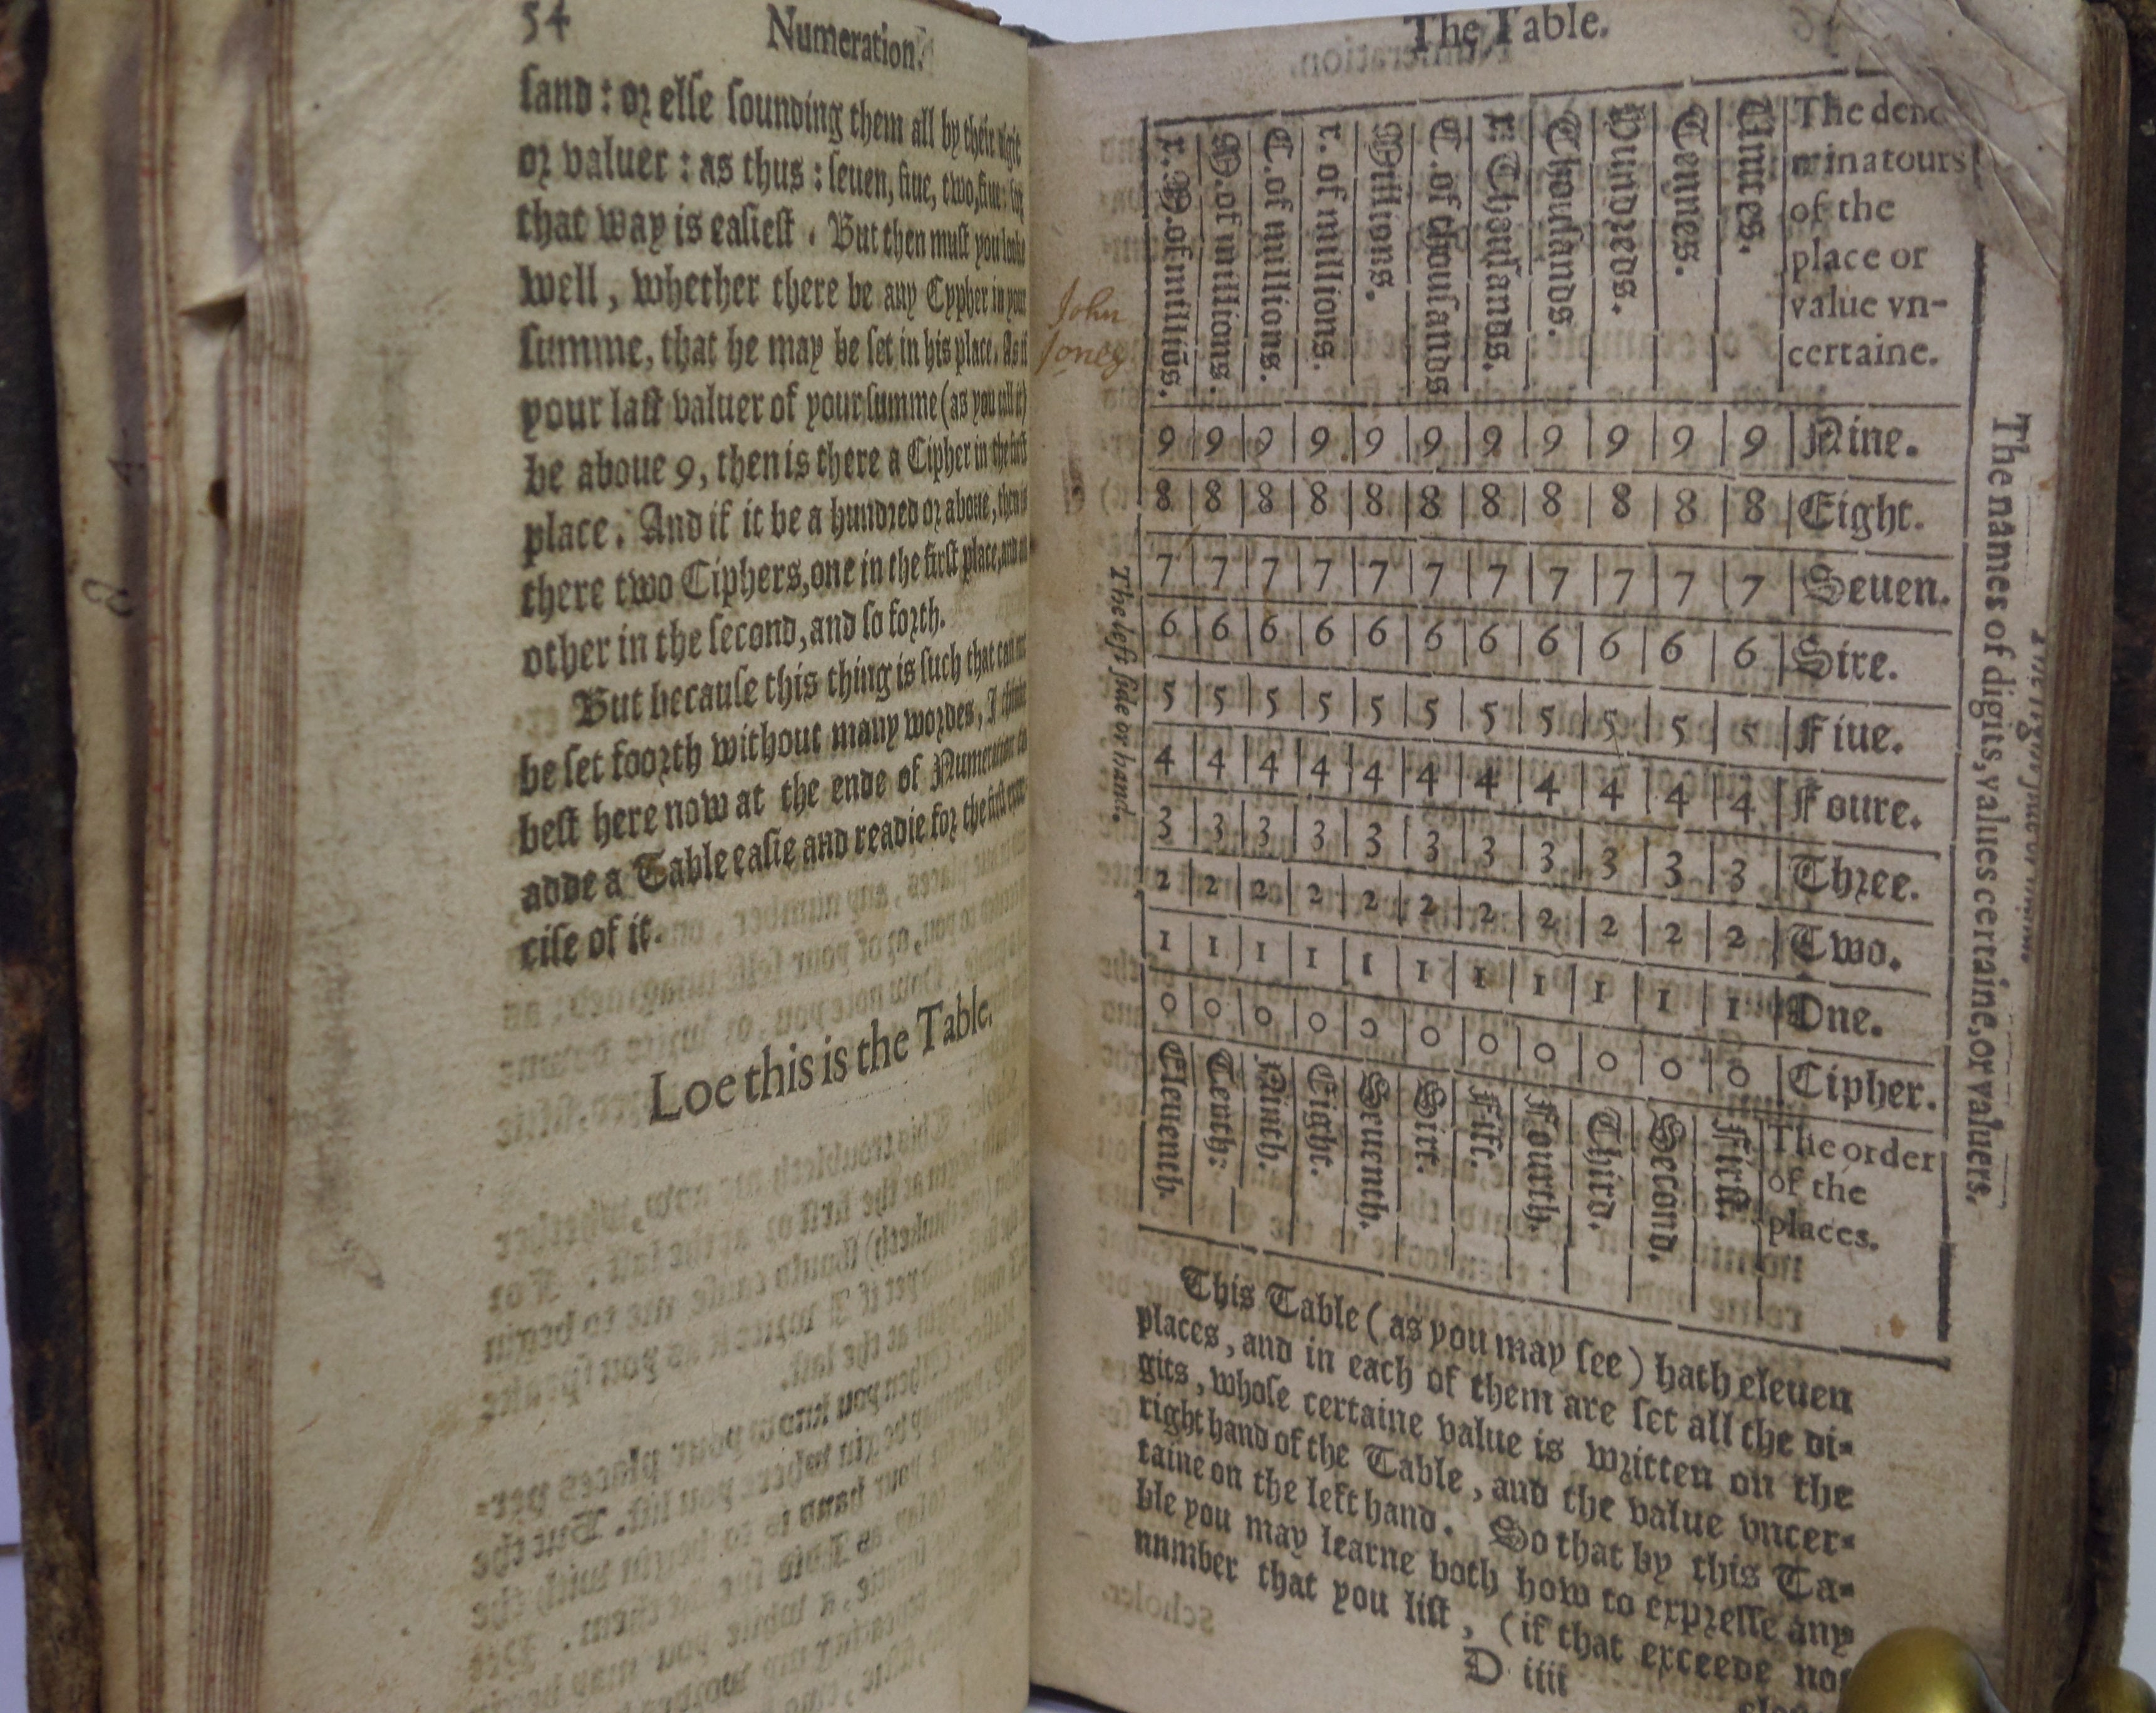 54 Numeration.
sand : or else sounding them all by their digit
or valuer : as thus : seuen, fiue, two, fiue : for
that way is easiest . But then must you looke
well , whether there be any Cypher in your
summe, that he may be set in his place. As if
your last valuer of your summe (as you call it)
be aboue 9, then is there a Cipher in the first
place. And if it be a hundred or aboue, then is
there two Ciphers, one in the first place, and
other in the second, and so forth.
But because this thing is such that can not
be set foorth without many wordes, I thinke
best here now at the ende of Numeration to
adde a Table easie and readie for the first
cise of it.
Loe this is the Table.
The Table.
x. M. of milliōs.
M. of millions.
C. of millions.
x. of millions.
Millions.
C. of thousands
x. Thousands.
Thousands.
Hundreds.
Tennes.
Unites.
The deno
minatours
of the
place or
value vn-
certaine.
9 9 9 9 9 9 9 9 9 9 9 Nine.
8 8 8 8 8 8 8 8 8 8 8 Eight.
7 7 7 7 7 7 7 7 7 7 7 Seuen.
6 6 6 6 6 6 6 6 6 6 6 Sixe.
5 5 5 5 5 5 5 5 5 5 5 Fiue.
4 4 4 4 4 4 4 4 4 4 4 Foure.
3 3 3 3 3 3 3 3 3 3 3 Three.
2 2 2 2 2 2 2 2 2 2 2 Two.
1 1 1 1 1 1 1 1 1 1 1 One.
0 0 0 0 0 0 0 0 0 0 0 Cipher.
Eleuenth.
Tenth.
Ninth.
Eight.
Seuenth.
Sixt.
Fift.
Fourth.
Third.
Second.
First.
The order
of the
places.
The left side or hand.
The names of digits, values certaine, or valuers.
John
Jones
This Table ( as you may see ) hath eleuen
places, and in each of them are set all the di-
gits , whose certaine value is written on the
right hand of the Table , and the value vncer-
taine on the left hand. So that by this Ta-
ble you may learne both how to expresse any
number that you list , (if that exceede not
D iiii